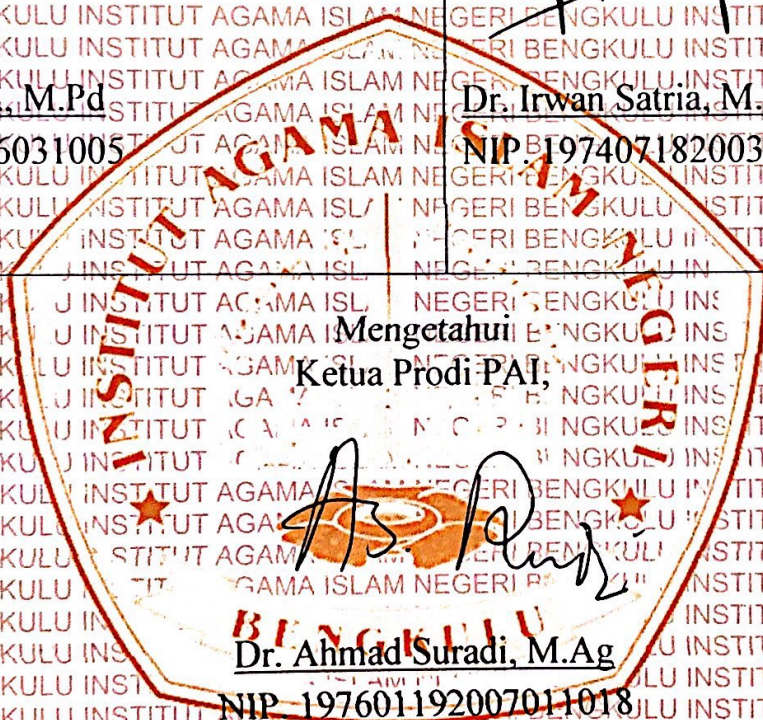 , M.Pd
6031005
Dr. Irwan Satria, M.
NIP. 197407182003
INSTITUT AGAMA ISLAM NEGERI
BENGKULU
Mengetahui
Ketua Prodi PAI,
Dr. Ahmad Suradi, M.Ag
NIP. 197601192007011018